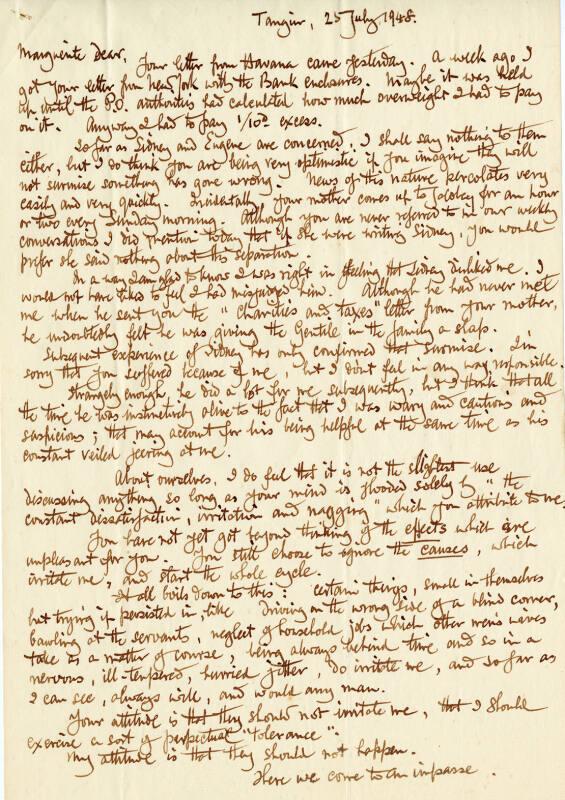 Tangier, 25 July, 1948.
Marguerite Dear,
Your letter from Havana came yesterday. A week ago I
got your letter from New York with the Bank enclosures. Maybe it was held
up until the P.O. authorities had calculated how much overweight I had to pay
on it. Anyway I had to pay 1/10d excess.
So far as Sidney and Eugene are concerned, I shall say nothing to them
either, but I do think you are being very optimistic if you imagine they will
not surmise something has gone wrong. News of this nature percolates very
easily and very quickly. Incidentally, your mother comes up to for an hour
or two every Sunday morning. Although you are never referred to in our weekly
conversations I did mention today that if she were writing Sidney, you would
prefer she said nothing about this separation.
In a way I am glad to know I was right in feeling that Sidney disliked me. I
would not have liked to feel I had misjudged him. Although he had never met
me when he sent you the "Charities and taxes" letter from your mother,
he undoubtedly felt he was giving the Gentile in the family a slap.
Subsequent experience of Sidney has only confirmed that surmise. I'm
sorry that you suffered because of me, but I don't feel in any way responsible.
Strangely enough, he did a lot for me subsequently, but I think that all
the time he was instinctively alive to the fact that I was wary and cautious and
suspicious; that may account for his being helpful at the same time as his
constant veiled jeering at me.
About ourselves, I do feel that it is not the slightest use
discussing anything so long as your mind is flooded solely by "the
constant dissatisfaction, irritation and nagging" which you attribute to me.
You have not yet got beyond thinking of the effects which are
unpleasant for you. You still choose to ignore the causes, which
irritate me, and start the whole cycle.
It all boils down to this: certain things, small in themselves
but trying if persisted in, like driving on the wrong side of a blind corner,
bawling at the servants, neglect of household jobs which other men's wives
take as a matter of course, being always behind time and so in a
nervous, ill-tempered, hurried jitter, do irritate me, and so far as
I can see, always will, and would any man.
Your attitude is that they should not irritate me, that I should
exercise a sort of perpetual "tolerance".
My attitude is that they should not happen.
Here we come to an impasse.